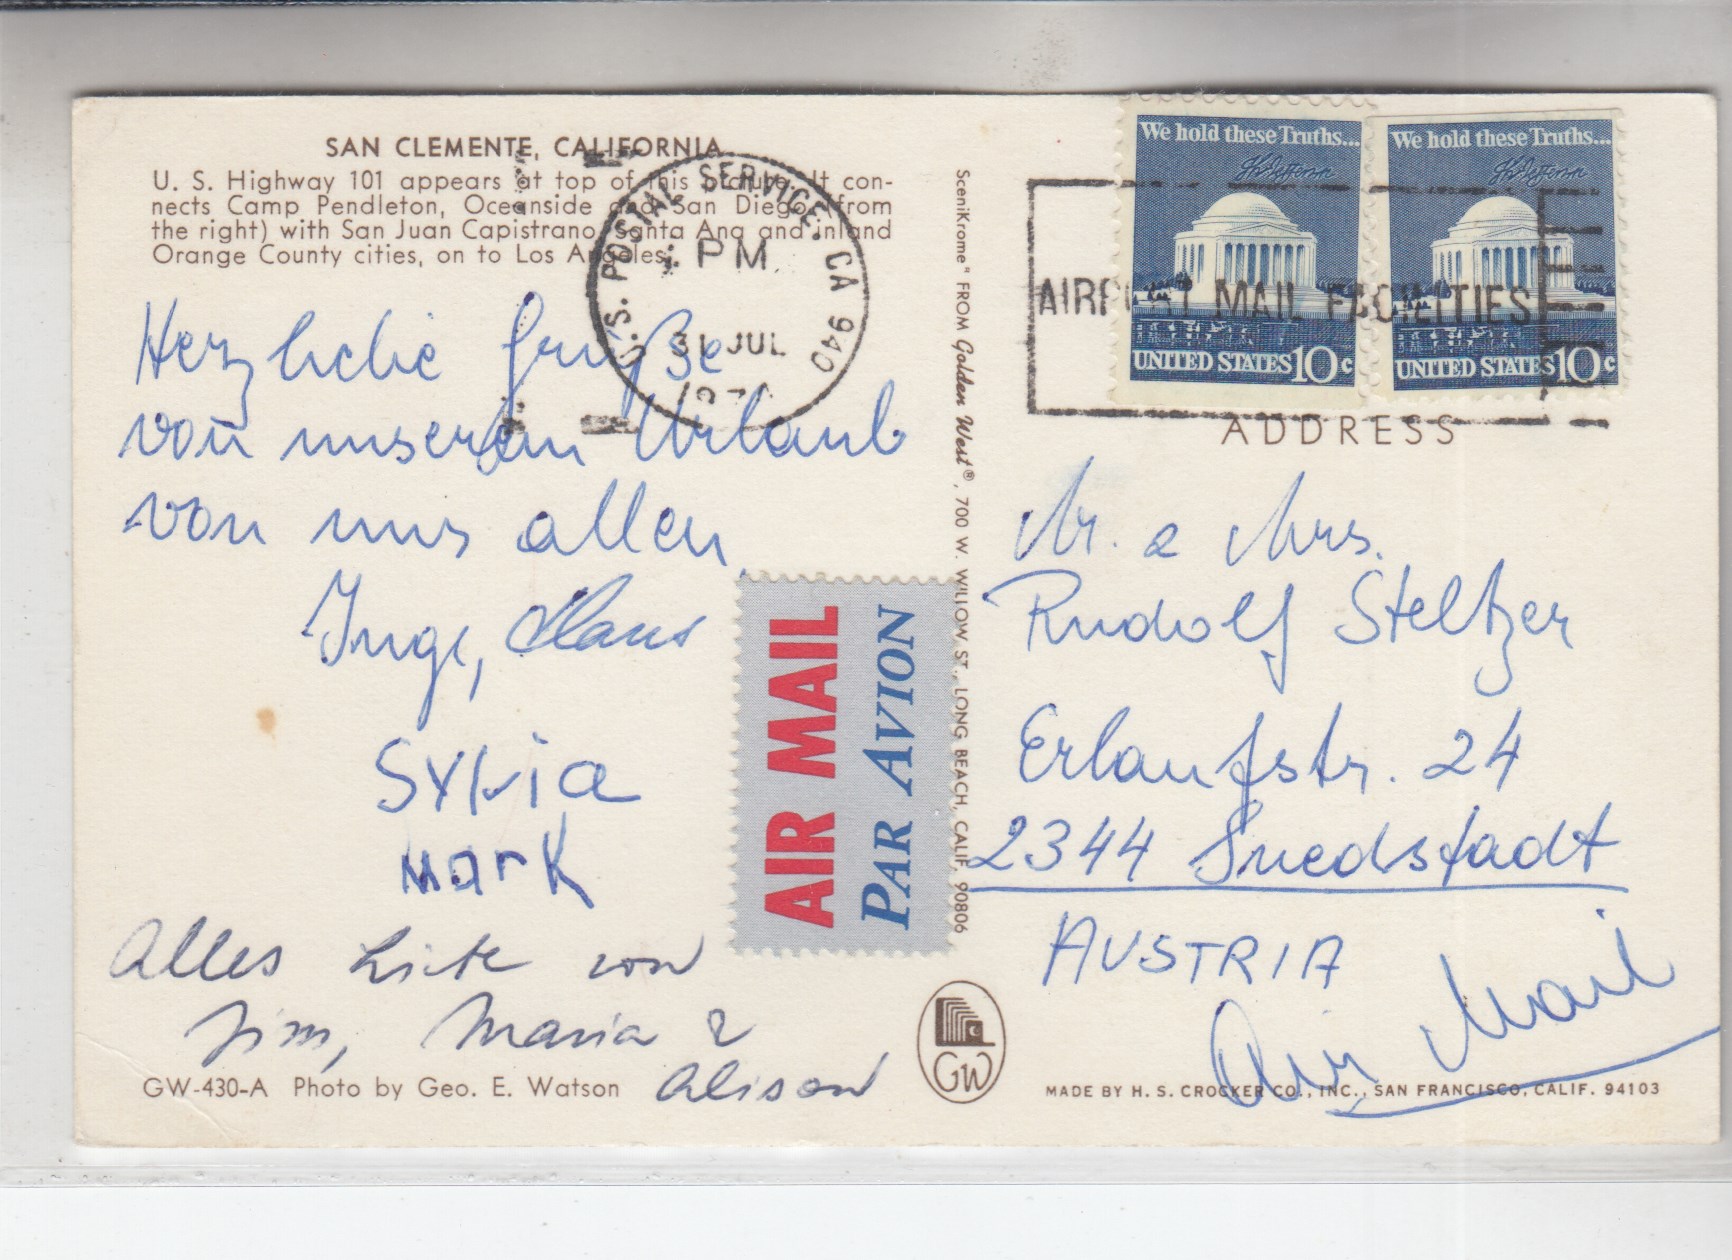 SAN CLEMENTE, CALIFORNIA
U. S. Highway 101 appears at top of this picture. It con-
nects Camp Pendleton, Oceanside and San Diego (from
the right) with San Juan Capistrano, Santa Ana and inland
Orange County cities, on to Los Angeles.
U.S. POSTAL SERVICE, CA 940
PM
31 JUL
Herzliche Grüße
von unserem Urlaub
von uns allen
Inge, Klaus
Sylvia
Mark
Alles Liebe von
Jim, Maria &
Alison
GW-430-A Photo by Geo. E. Watson
AIR MAIL
PAR AVION
SceniKrome® FROM Golden West®, 700 W. WILLOW ST., LONG BEACH, CALIF. 90806
GW
We hold these Truths...
UNITED STATES 10c
We hold these Truths...
UNITED STATES 10c
AIRPORT MAIL FACILITIES
ADDRESS
Mr. & Mrs.
Rudolf Steltzer
Erlaufstr. 24
2344 Suedstadt
AUSTRIA
Air Mail
MADE BY H. S. CROCKER CO., INC., SAN FRANCISCO, CALIF. 94103